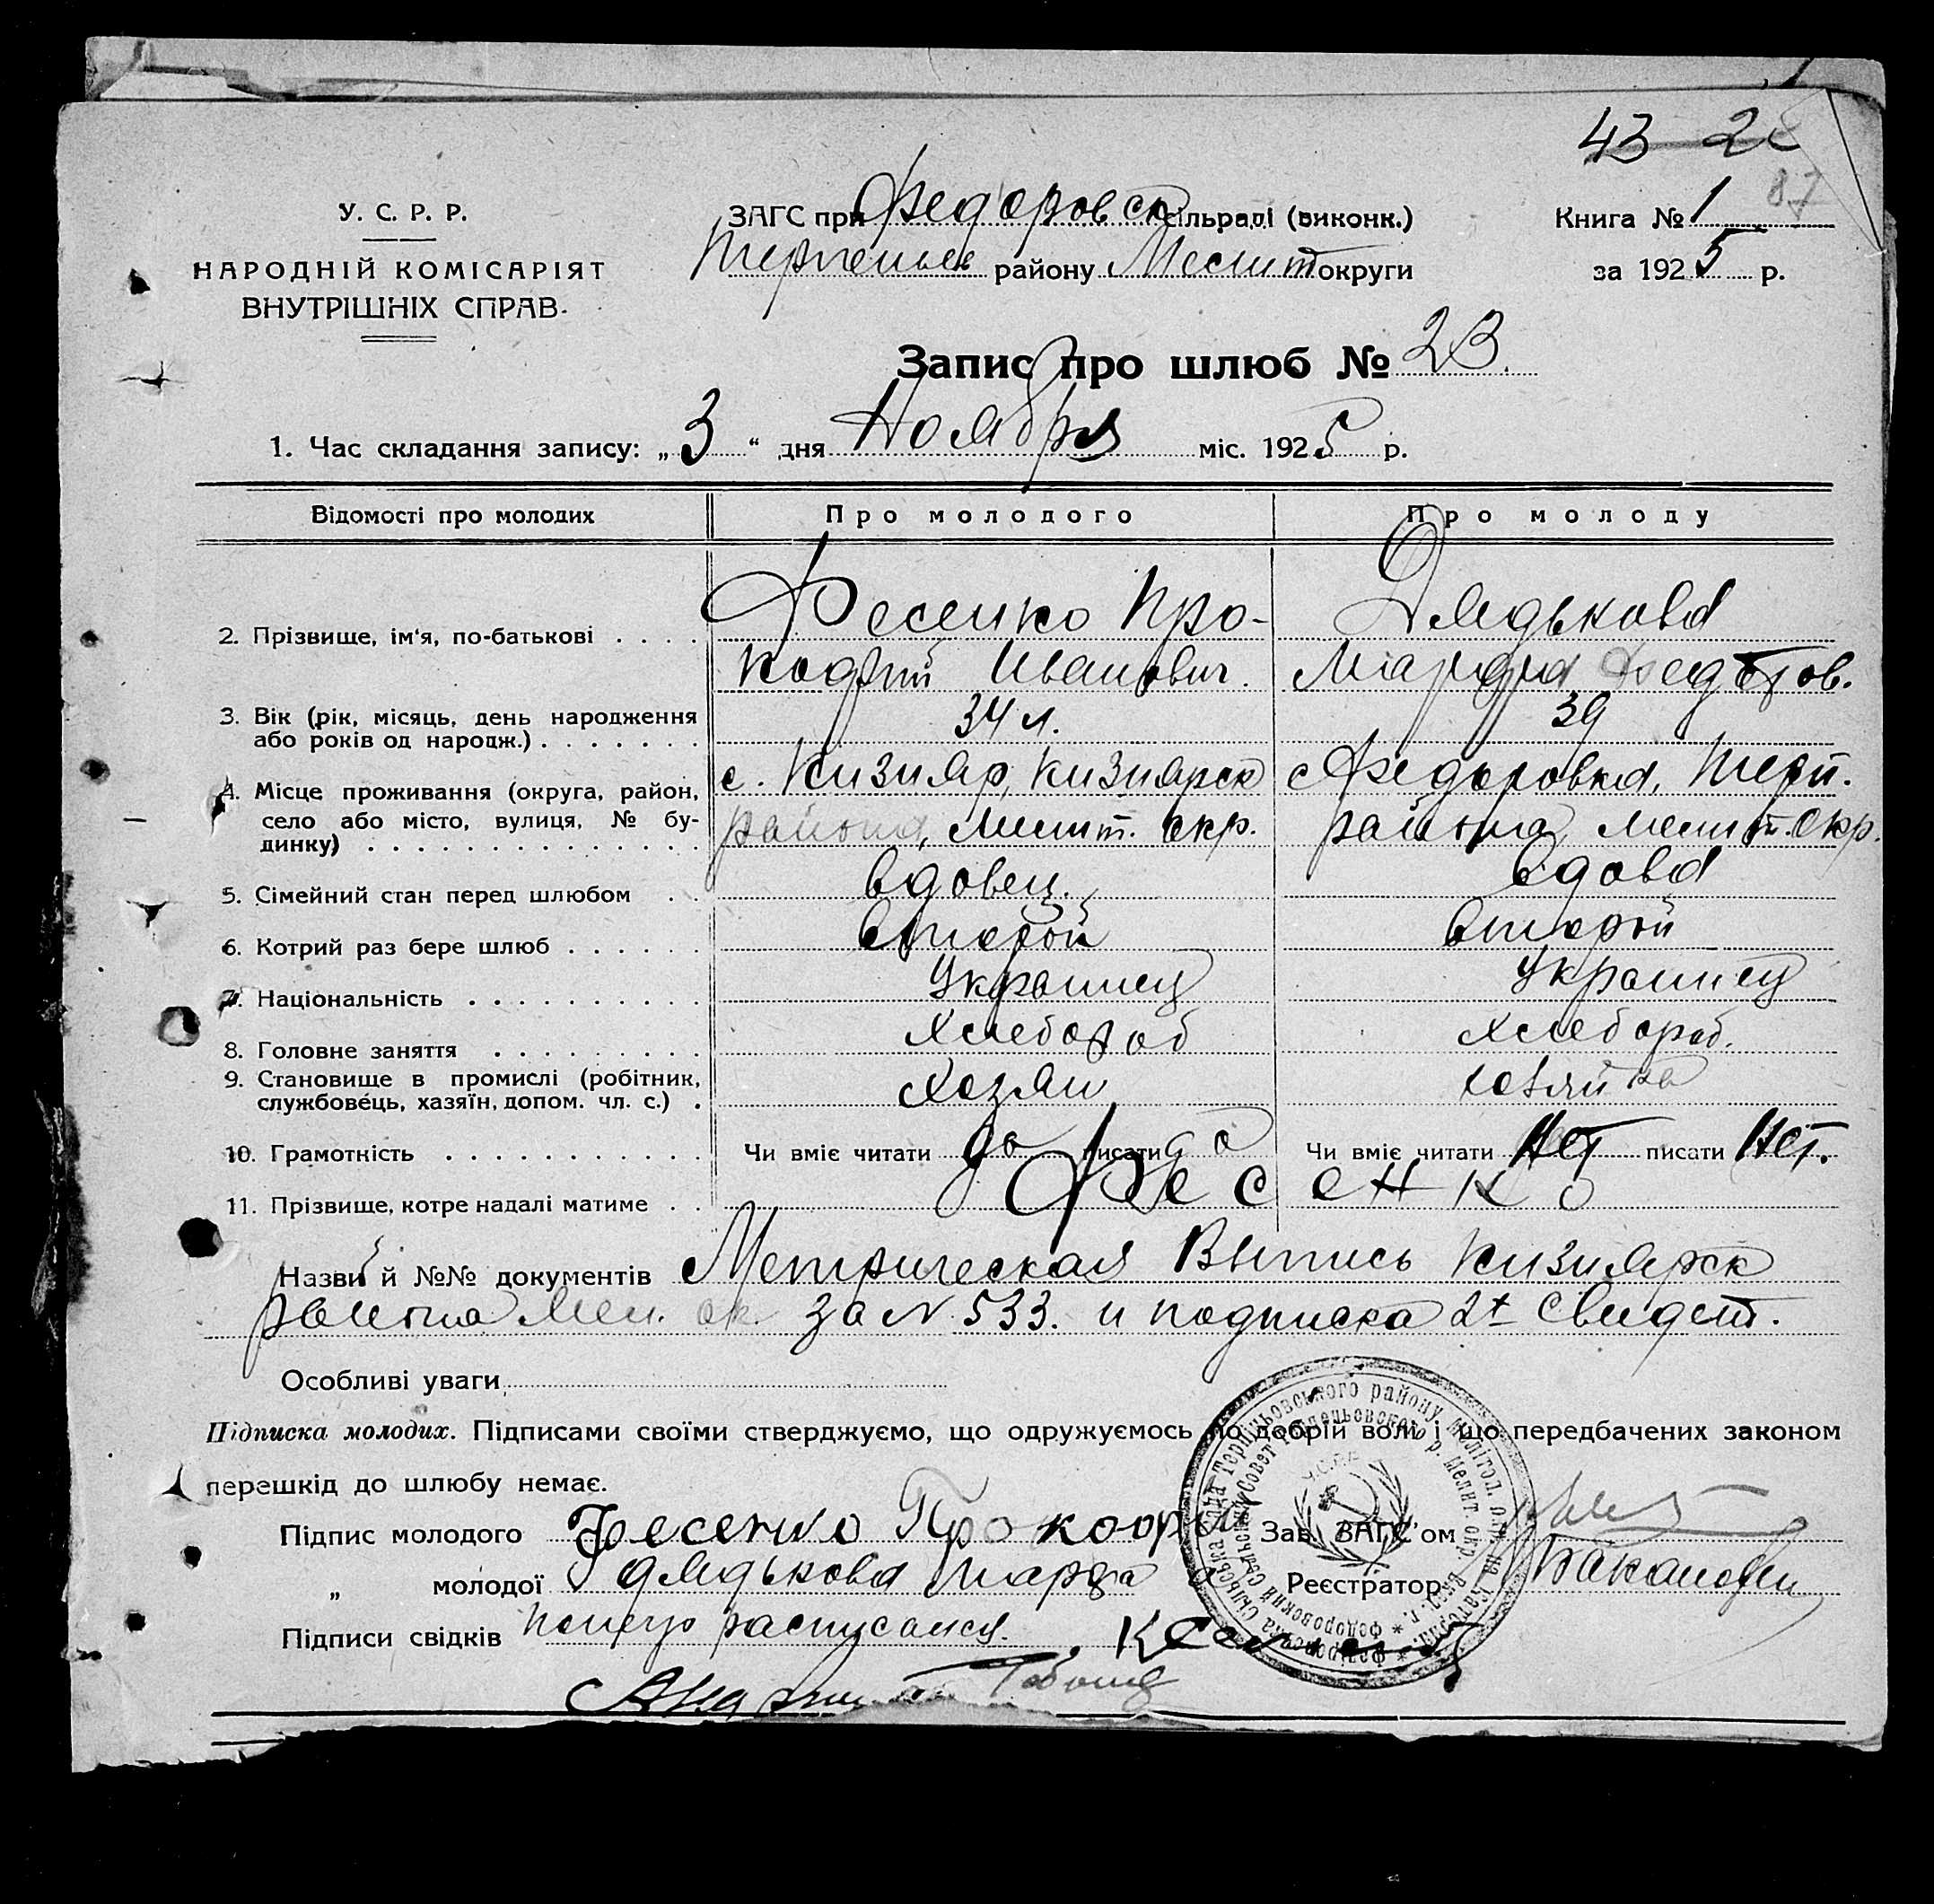 43 – 2
87
У. С. Р. Р.
НАРОДНІЙ КОМІСАРІЯТ
ВНУТРІШНІХ СПРАВ.
ЗАГС при Федоровск сільраді (виконк.)
району Мелит округи
Книга № 1
за 1925 р.
Запис про шлюб № 23.
1. Час складання запису: „3“ дня Ноября міс. 1925 р.
Відомості про молодих Про молодого Про молоду
2. Прізвище, ім'я, по-батькові . . . .
Фесенко Про-
кофий Иванович.
Дядькова
Марфа Федоров.
3. Вік (рік, місяць, день народження
або років од народж.) . . . . . . .
34 л.
39
4. Місце проживання (округа, район,
село або місто, вулиця, № бу-
динку) . . . . . . . . . . . . . . .
с. Кизияр, Кизиярск
района, Мелит. окр.
с Федоровка, Терп.
района, Мелит. Окр.
5. Сімейний стан перед шлюбом . . вдовец. вдова
6. Котрий раз бере шлюб . . . . . . второй второй
7. Національність . . . . . . . . . . Украинец Украинец
8. Головне заняття . . . . . . . . . Хлебороб Хлебороб.
9. Становище в промислі (робітник,
службовéць, хазяїн, допом. чл. с.) .
Хозяин
хозяйка
10. Грамоткість . . . . . . . . . . . Чи вміє читати да писати да Чи вміє читати Нет писати Нет.
11. Прізвище, котре надалі матиме . . Фесенко
Назви й №№ документів Метрическая Выпись Кизиярск
района Мел. ок. за N 533. и подписка 2х свидет.
Особливі уваги
Підписка молодих. Підписами своїми стверджуємо, що одружуємось по добрій волі і що передбачених законом
перешкід до шлюбу немає.
Підпис молодого Фесенко Прокофий Зав. ЗАГС'ом
„ молодої Дядькова Марфа Реєстратор
Підписи свідків